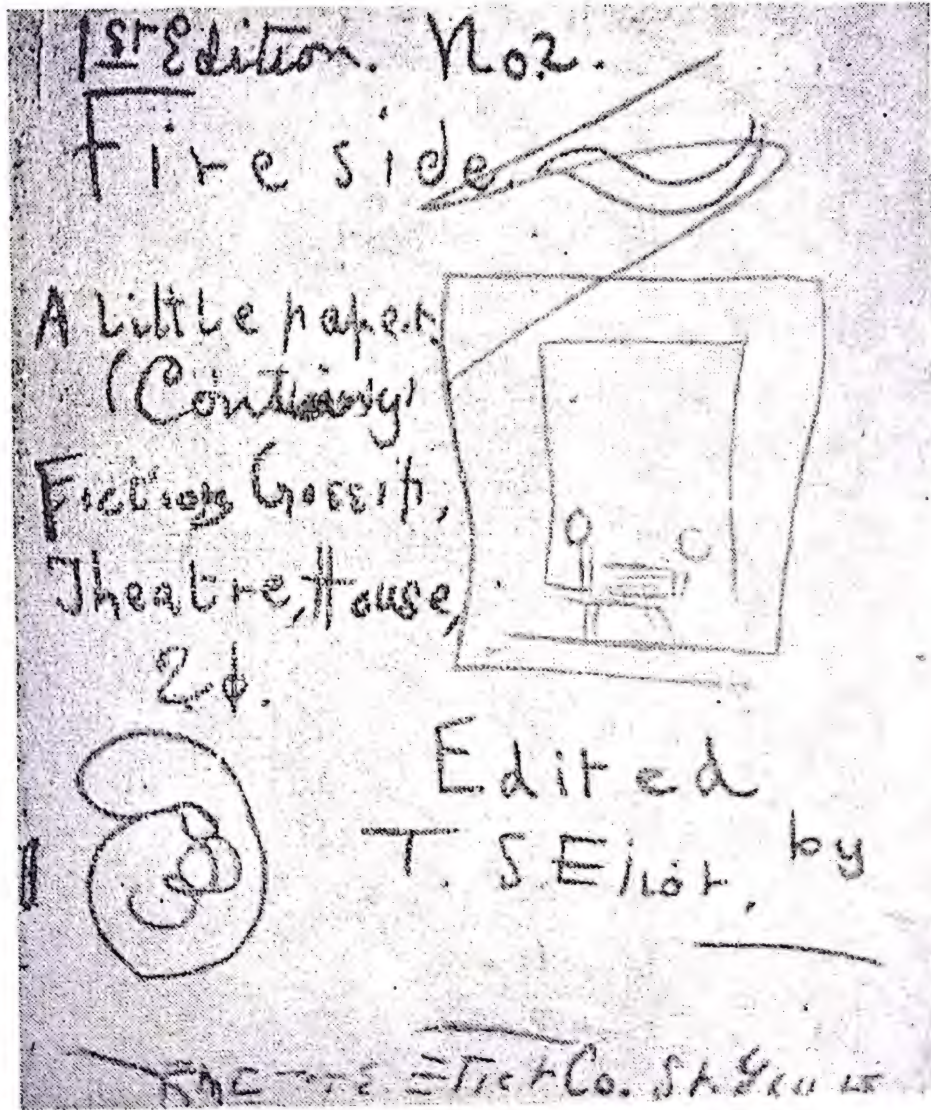 1st Edition. No2.
Fireside,
A Little paper,
(Containing)
Fiction Gossip,
Theatre, House,
2¢.
Edited
by
T. S Eliot.
Co. St